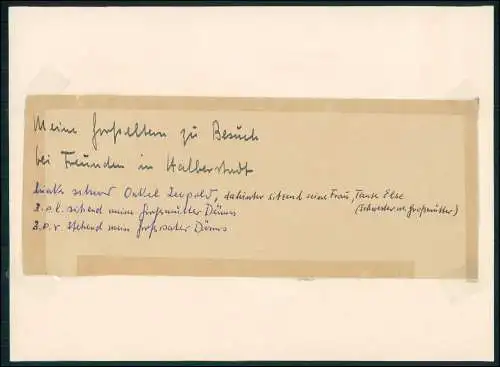 Meine Großeltern zu Besuch
bei Freunden in Halberstadt
links sitzend Onkel Leopold, dahinter sitzend seine Frau, Tante Else
(Schwester m. Großmutter)
2. v. l. sitzend meine Großmutter
2. v. r. stehend mein Großvater